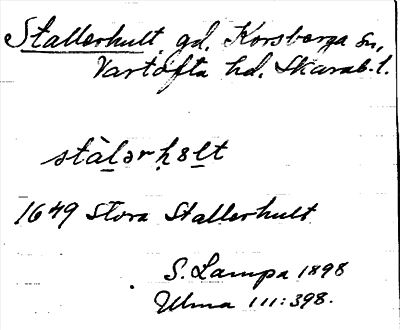 Stallerhult gd. Korsberga sn,
Vartofta hd. Skarab. l.
stàl̲ərḥ8l̲t
1649 Stora Stallerhult
S. Lampa 1898
Ulma 111:398.